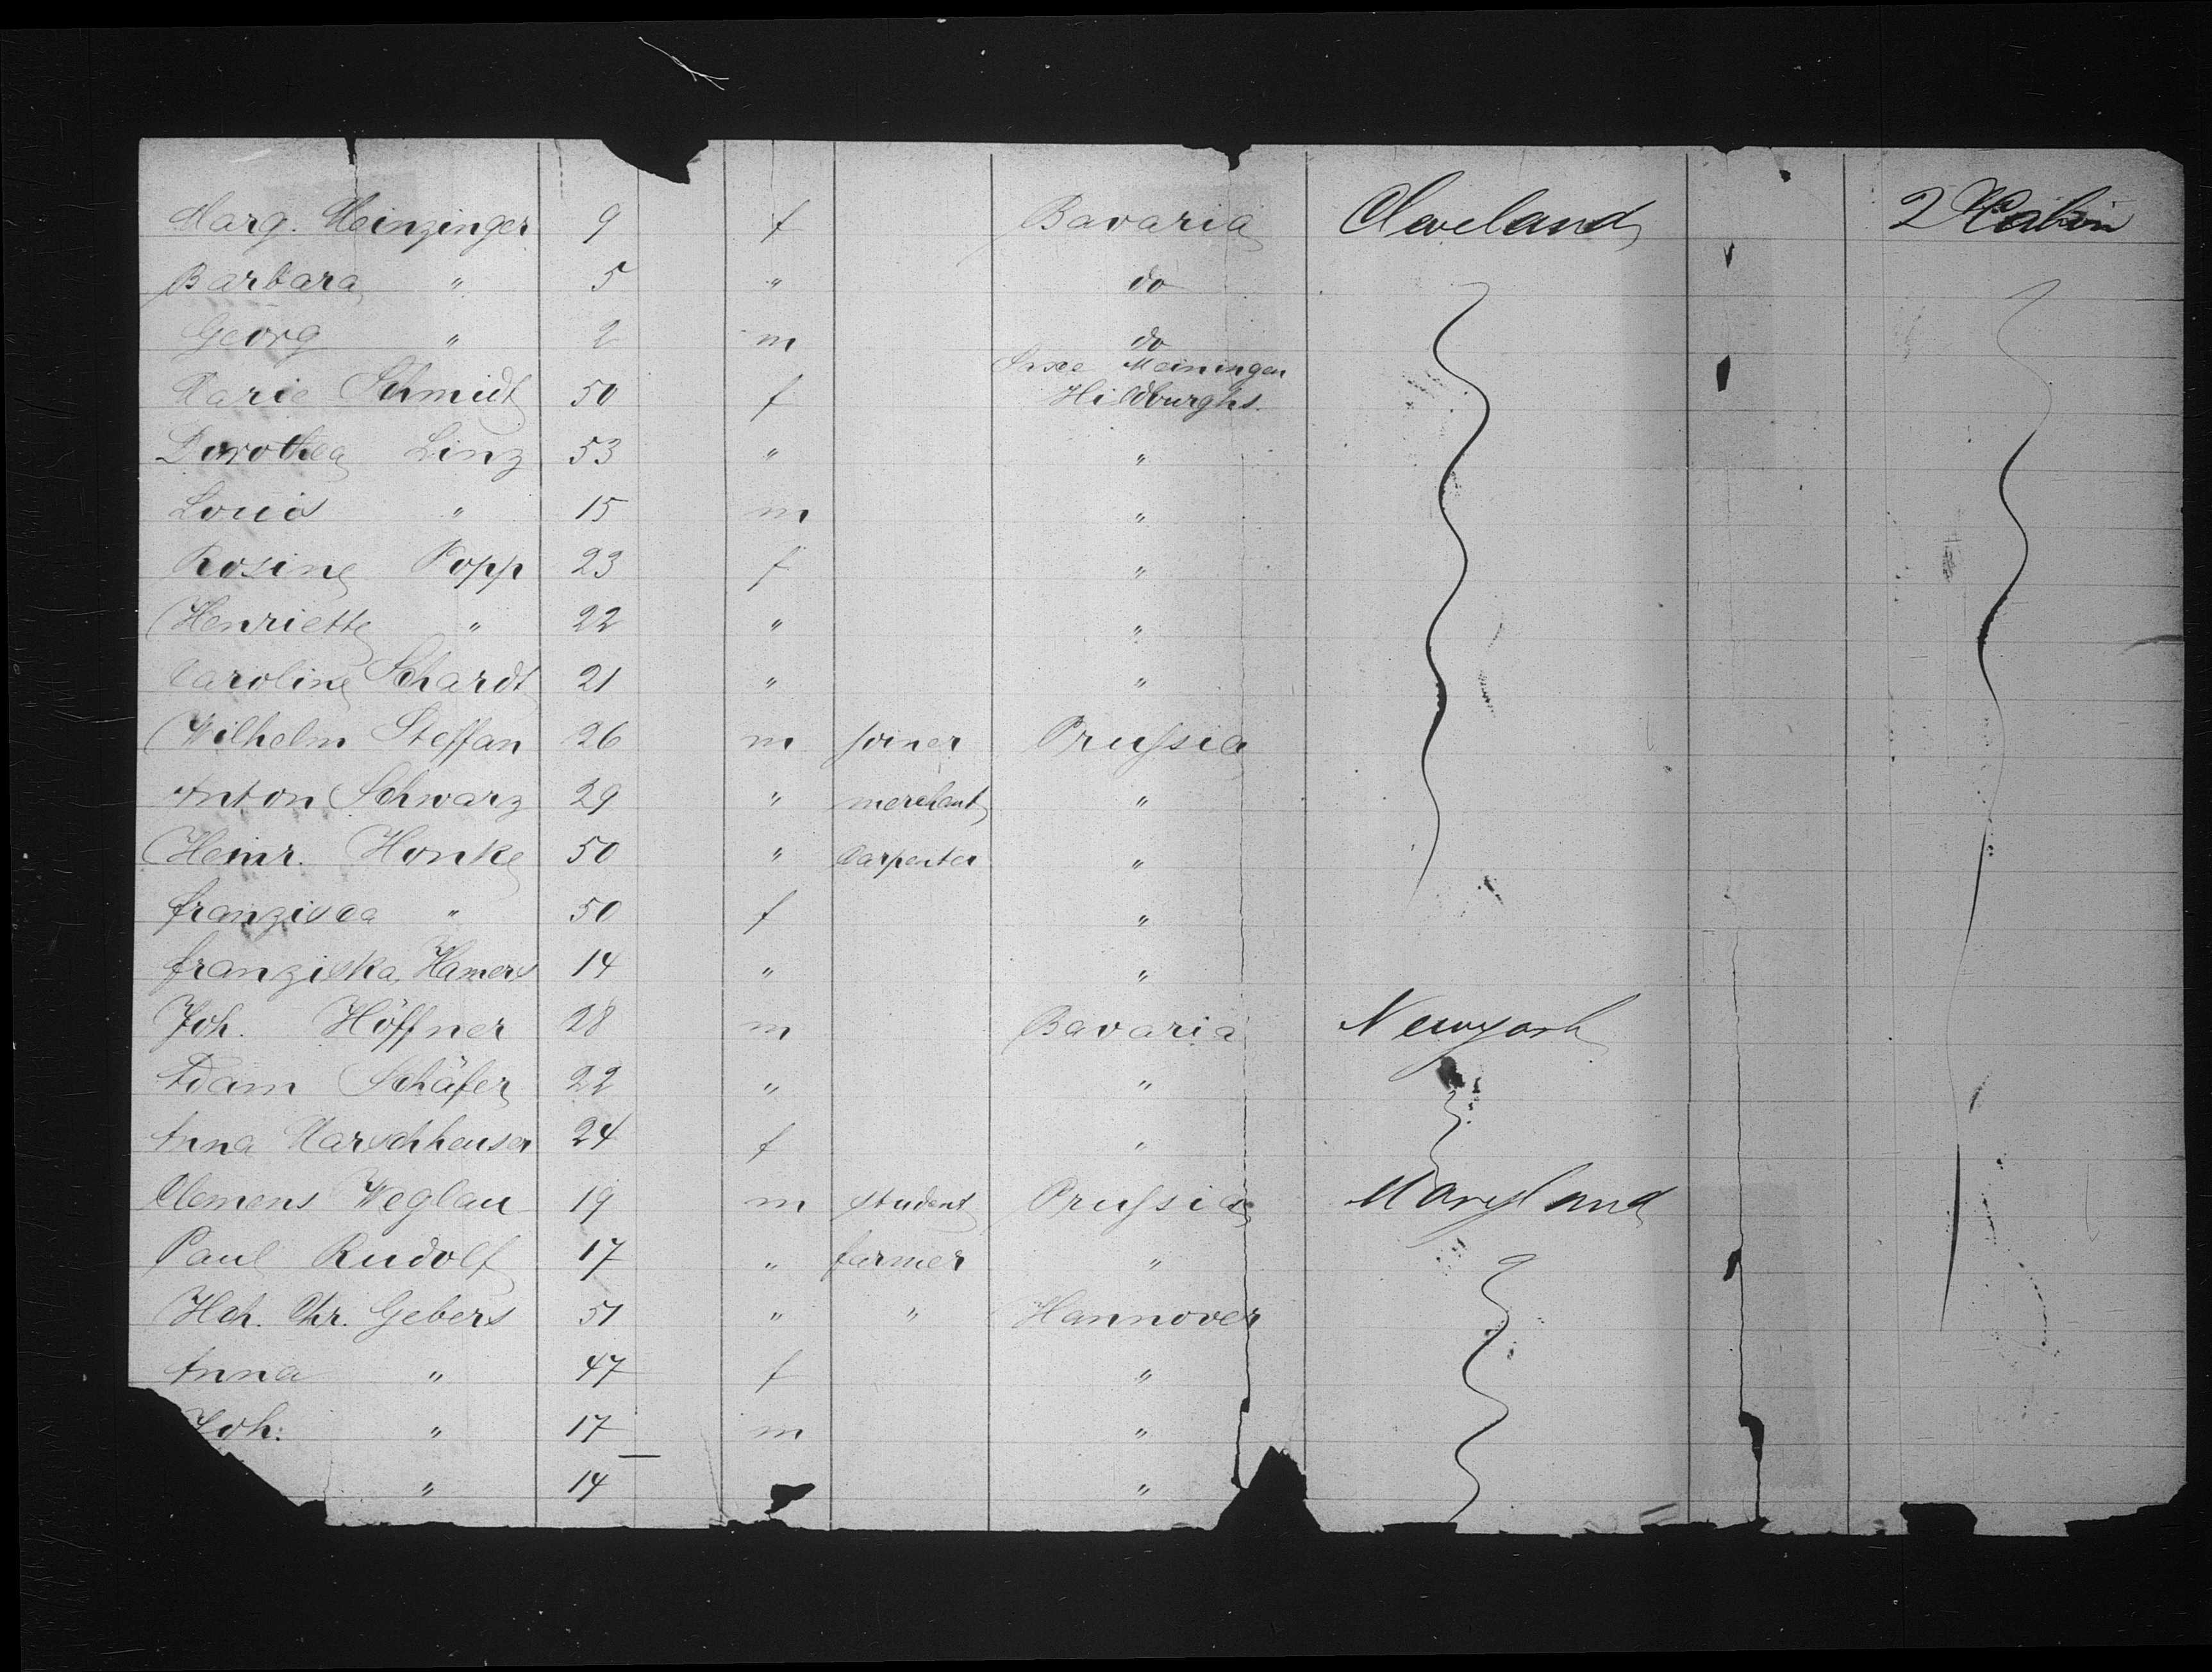 Marg. Meinzinger 9 f Bavaria Cleveland 2 Kabin
Barbara " 5 " do
Georg " 2 m do
Marie Schmidt 50 f Meiningen Hildburghs.
Dorothea Linz 53 " "
Louis " 15 m "
Rosine Popp 23 f "
Henriette " 22 " "
Caroline Schardt 21 " "
Wilhelm Steffan 26 m joiner Prussia
Anton Schwarz 29 " merchant "
Heinr. Honke 50 " Carpenter "
Franzisca " 50 f "
Franziska Hamers 14 " "
Joh. Höffner 28 m Bavaria Newyork
Adam Schäfer 22 " "
Anna 24 f "
Clemens Weglau 19 m student Prussia Maryland
Paul Rudolf 17 " farmer "
Hch. Chr. Gebers 51 " " Hannover
Anna " 47 f "
Joh: " 17 m "
" 14 "